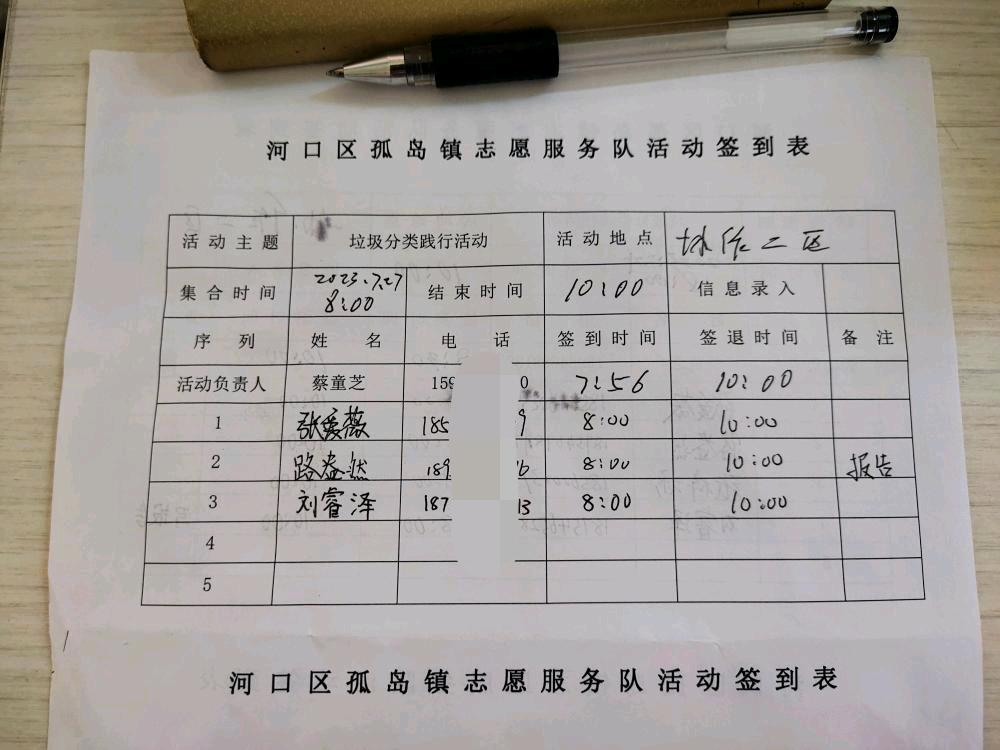 河口区孤岛镇志愿服务队活动签到表
活动主题 垃圾分类践行活动 活动地点 协作二区
集合时间 2023.7.27 8:00 结束时间 10:00 信息录入
序列 姓名 电话 签到时间 签退时间 备注
活动负责人 蔡童芝 159 0 7:56 10:00
1 张爱薇 185 9 8:00 10:00
2 路益然 189 6 8:00 10:00 报告
3 刘睿泽 187 13 8:00 10:00
4
5
河口区孤岛镇志愿服务队活动签到表